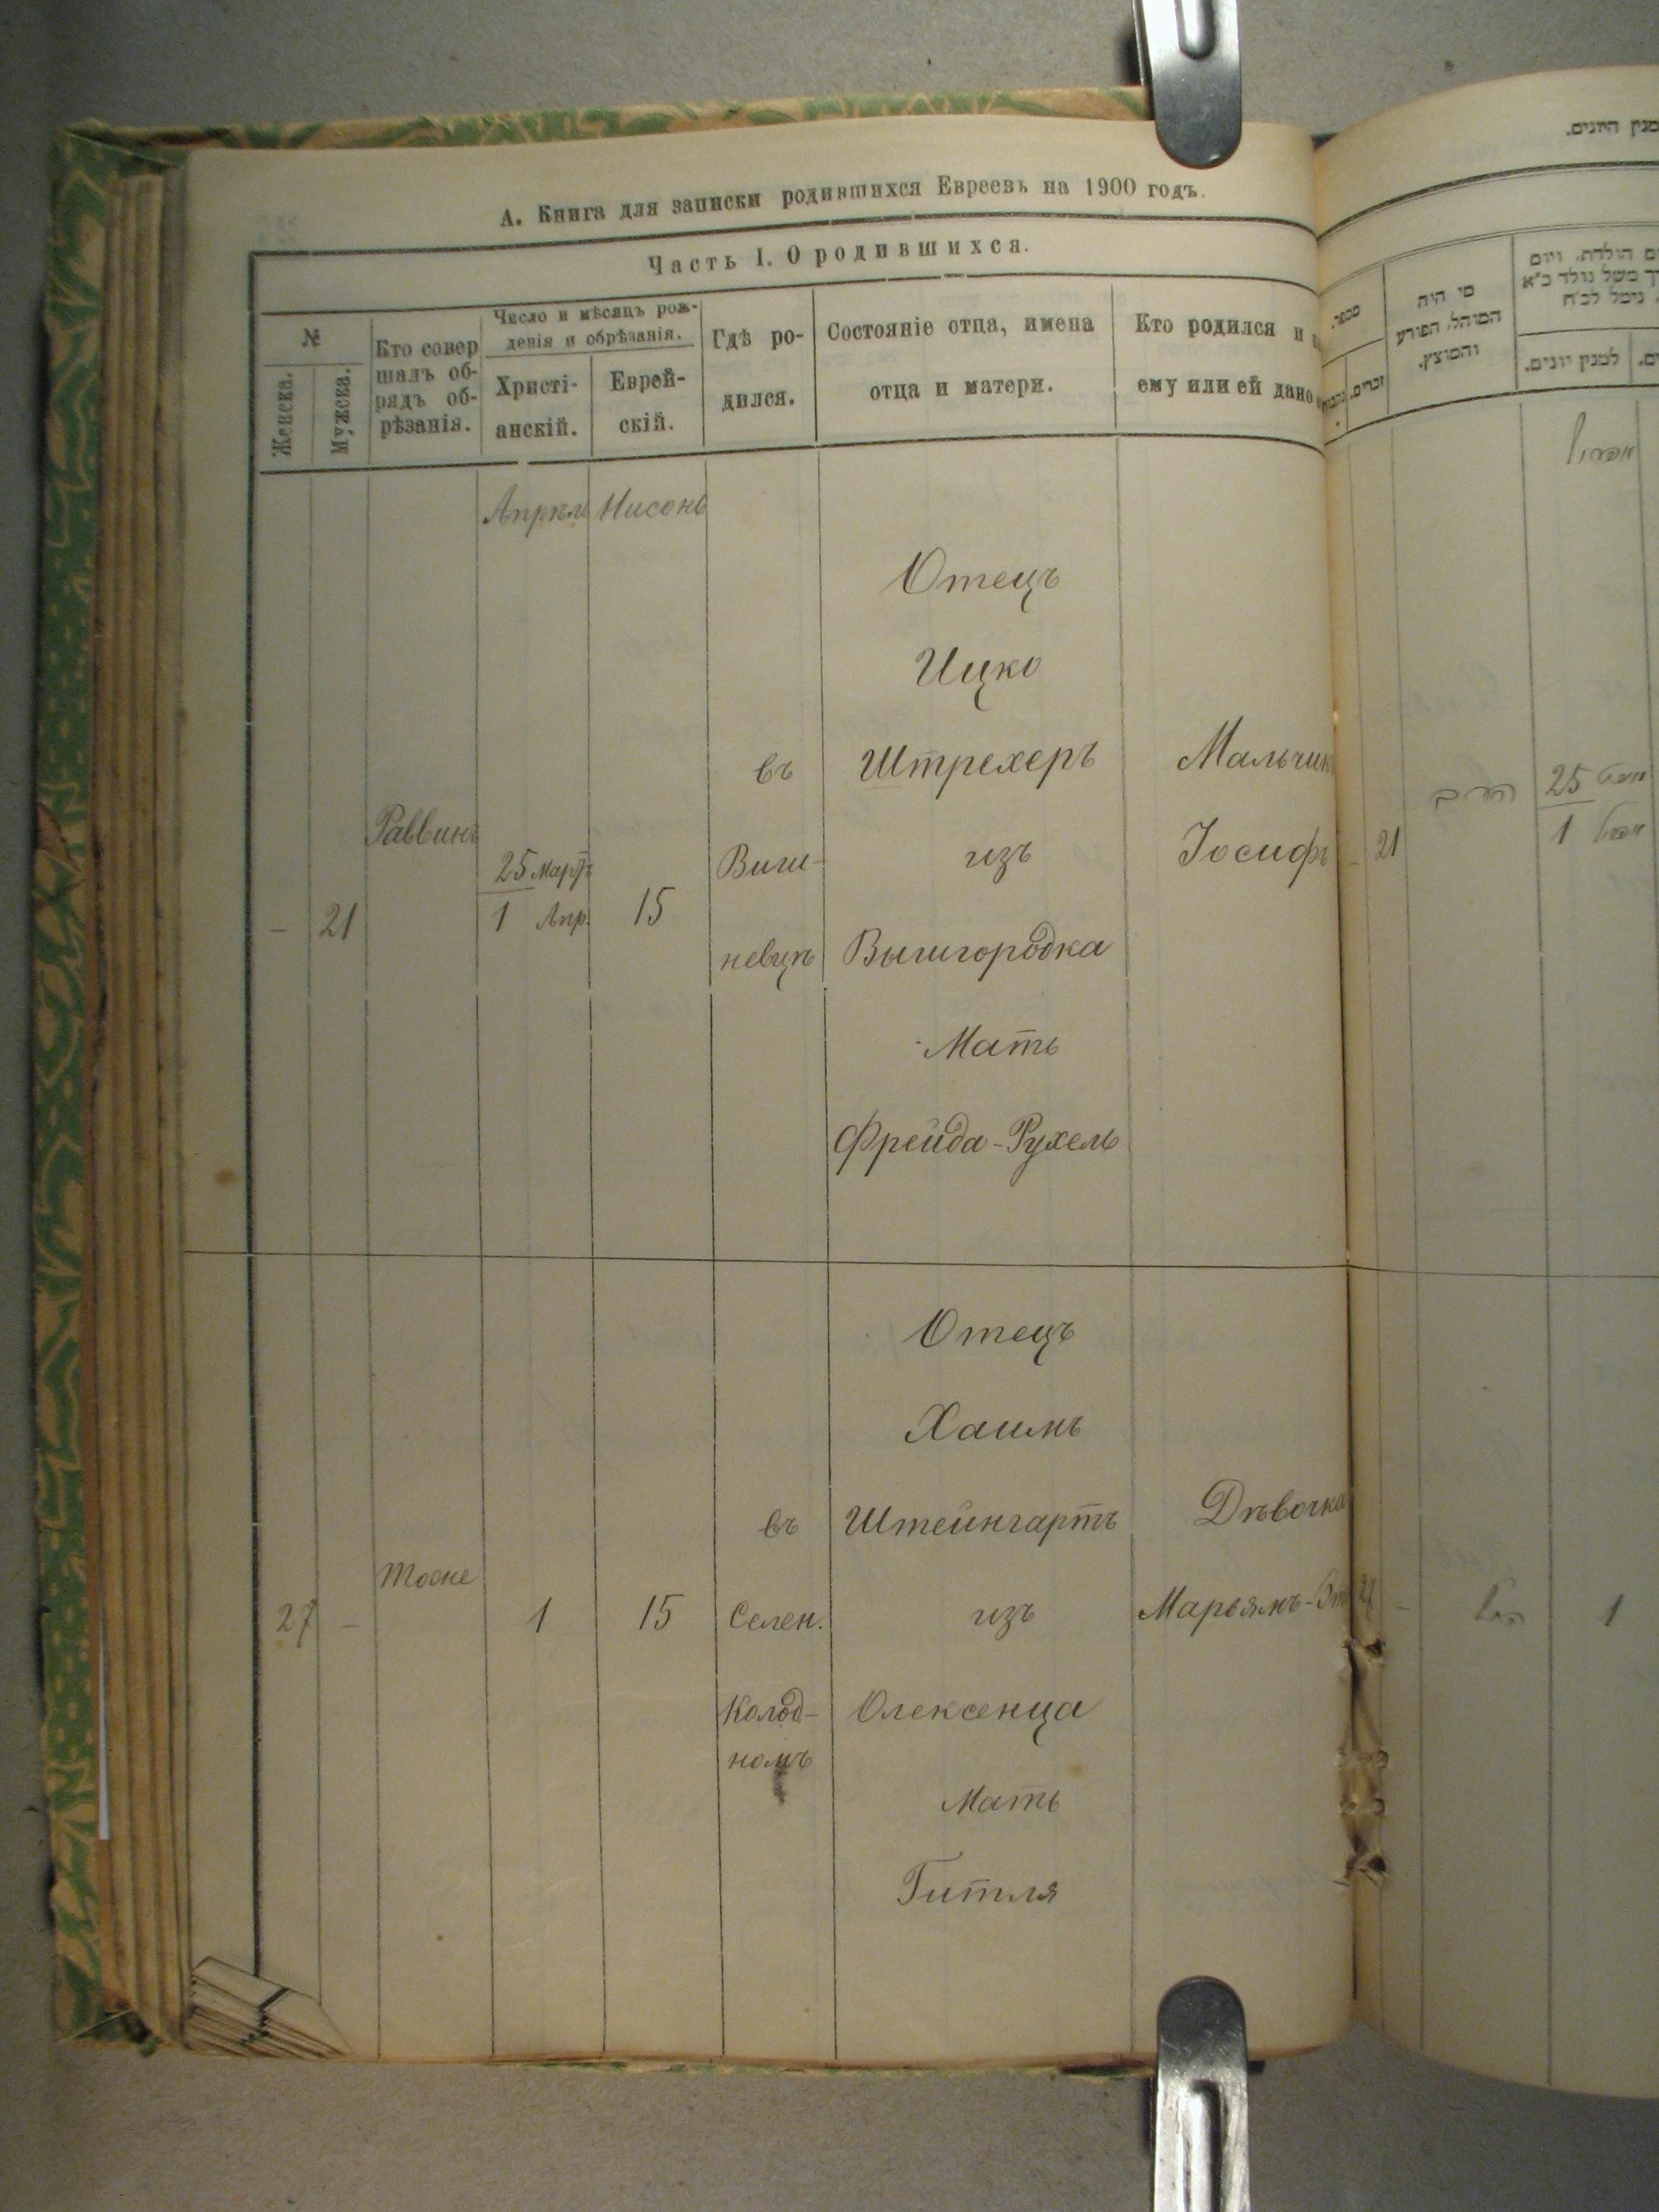 А. Книга для записки родившихся Евреевъ на 1900 годъ.
Часть I. О родившихся.
№
Женска.
Мужска.
Кто совер
шалъ об-
рядъ об-
рѣзанія.
Число и мѣсяцъ рож-
денія и обрѣзанія.
Христі-
анскій.
Еврей-
скій.
Гдѣ ро-
дился.
Состояніе отца, имена
отца и матери.
Кто родился и
ему или ей дано
Апрѣль Нисонъ
- 21
Раввинъ
25 Март.
1 Апр.
15
въ
Виш-
невцѣ
Отецъ
Ицко
Штрехеръ
изъ
Вышгородка
Мать
Фрейда-Рухель
Мальчик
Іосифъ
27 -
Тоже
1
15
въ
Селен.
Колод-
номъ
Отецъ
Хаимъ
Штейнгартъ
изъ
Олексенца
Мать
Гитля
Дѣвочка
Марьямъ-Эт
למנין היונים.
מספר.
זכרים.
מי היה
המוהל, הפורע
והמוצץ.
יום הולדת, ויום
למנין יונים.
אפריל
- 21
הרב
25
1 אפריל
27 -
1